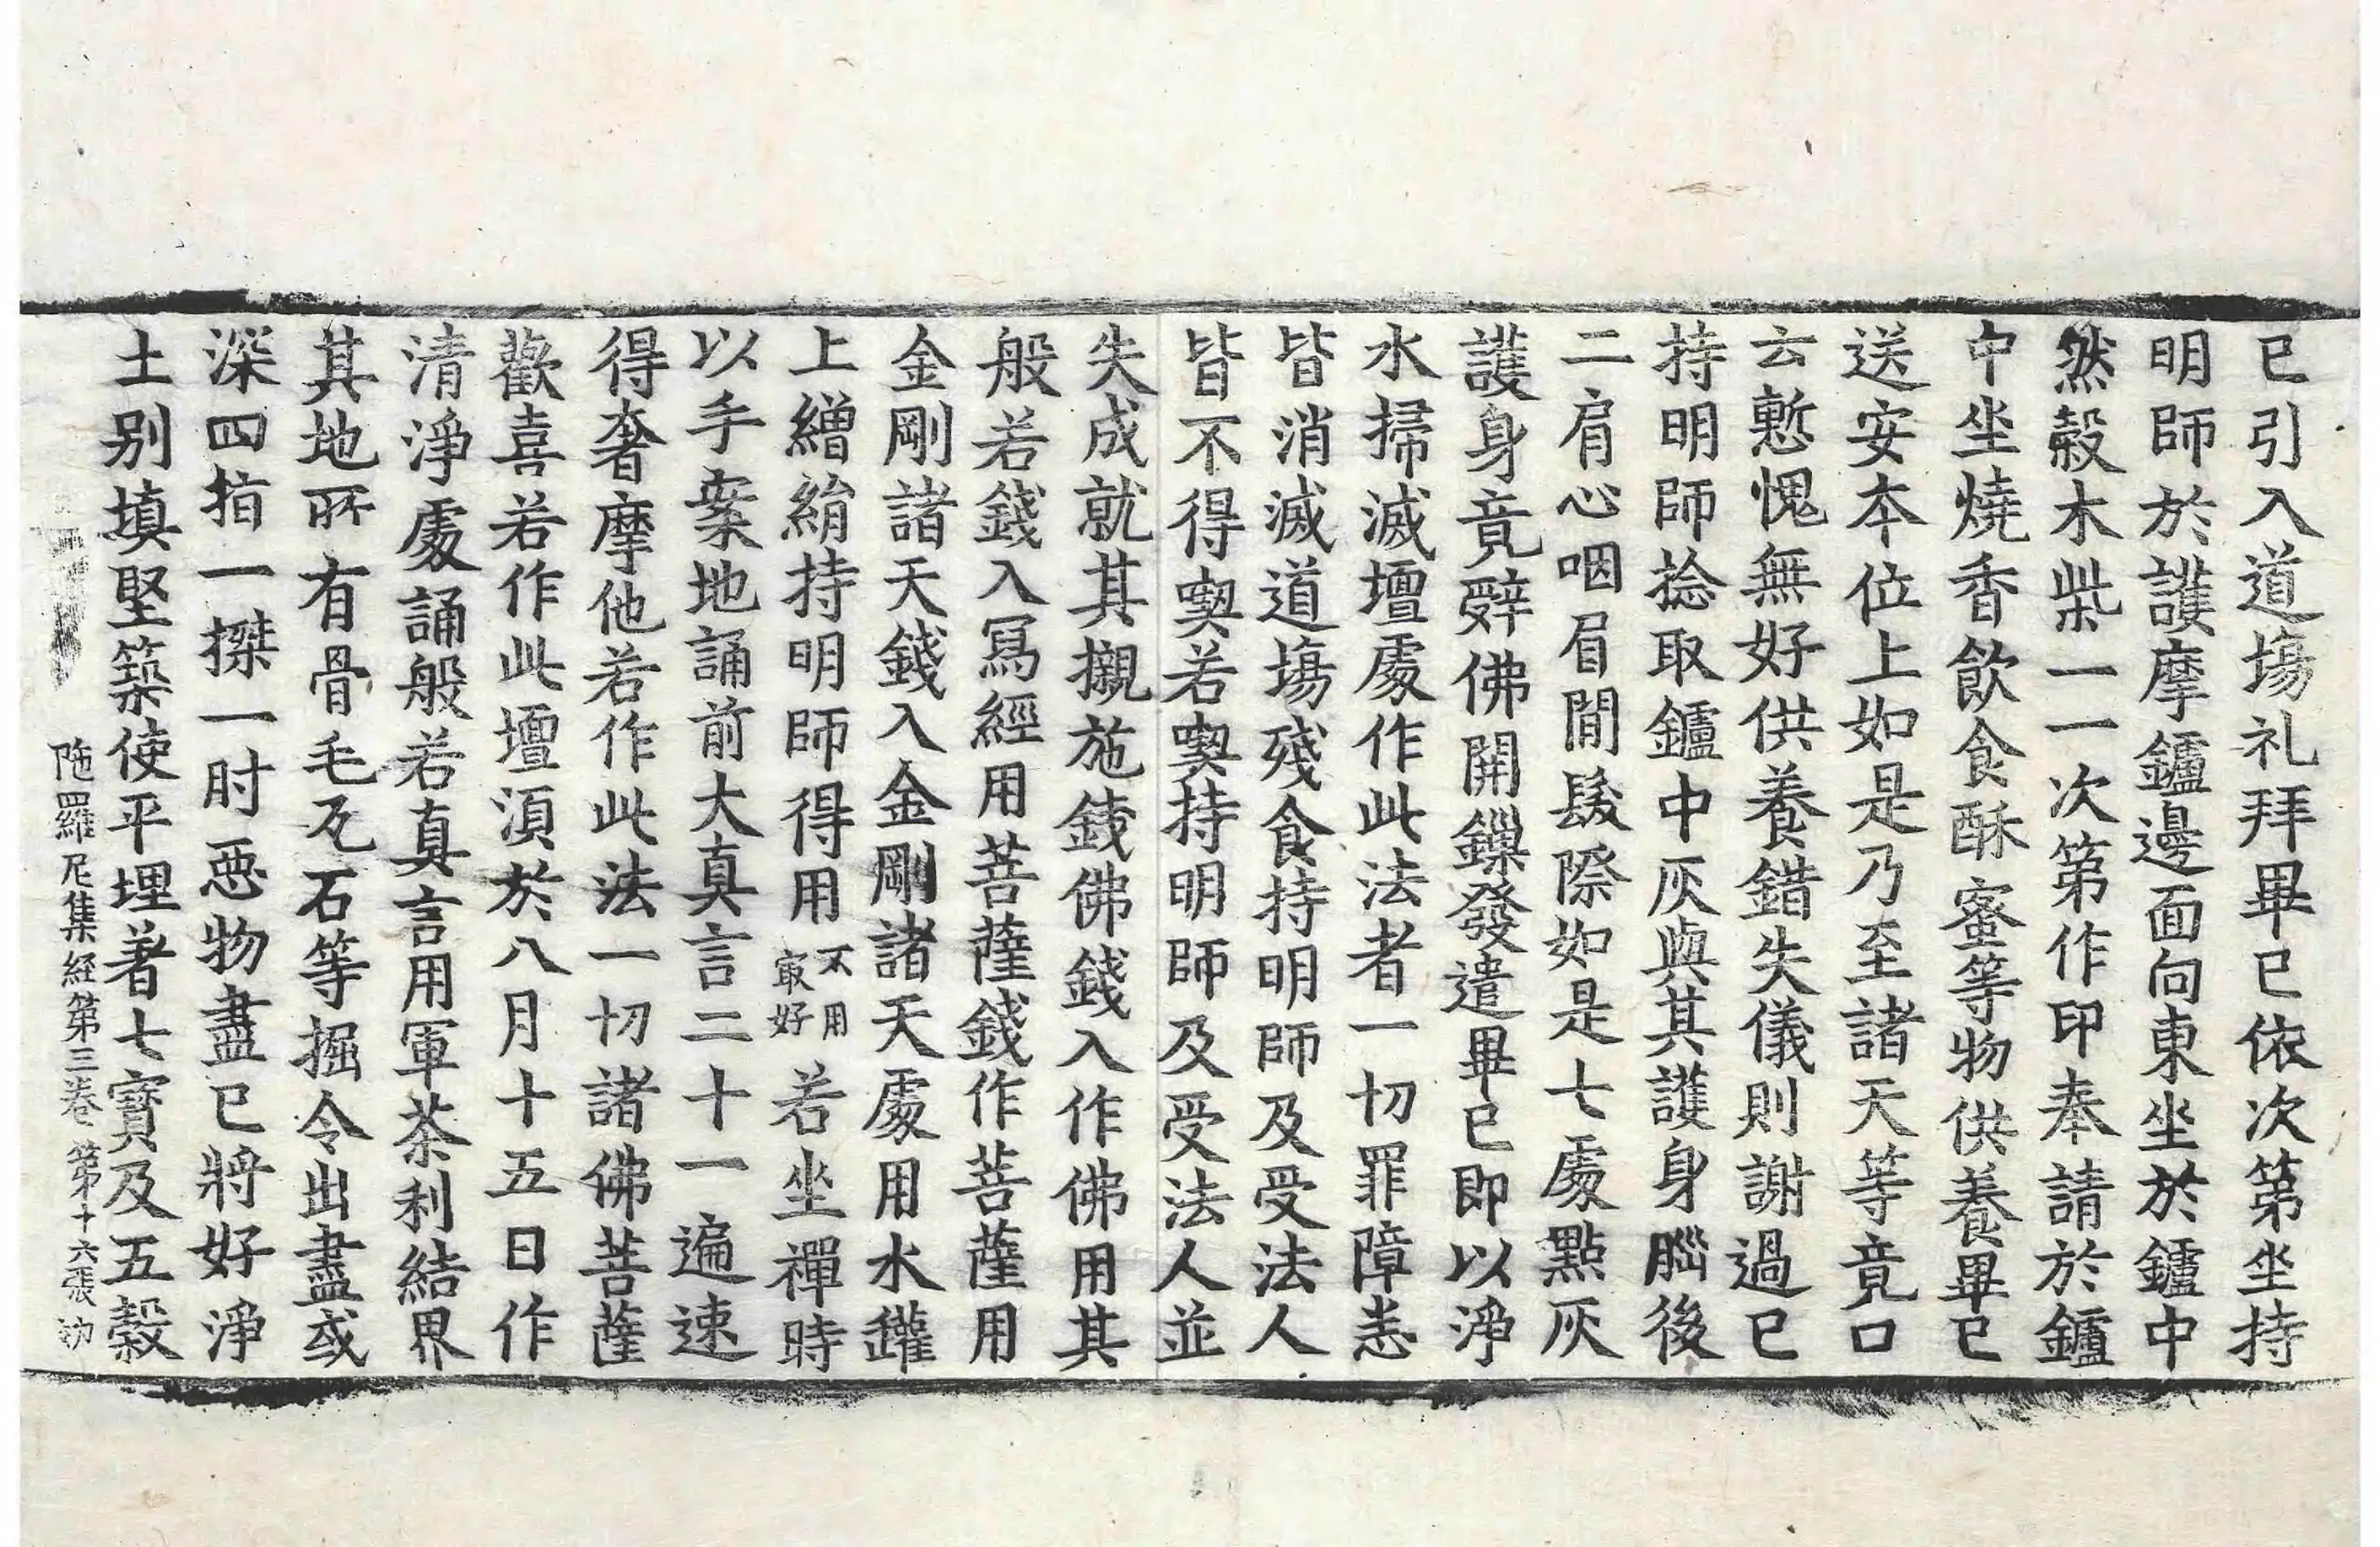 已引入道場礼拜畢已依次第坐持
明師於護摩鑪邊面向東坐於鑪中
然穀木柴一一次第作印奉請於鑪
中坐燒香飲食酥蜜等物供養畢已
送安本位上如是乃至諸天等竟口
云慙愧無好供養錯失儀則謝過已
持明師捻取鑪中灰與其護身腦後
二肩心咽眉間髮際如是七處點灰
護身竟辤佛開鏁發遣畢已即以淨
水掃滅壇處作此法者一切罪障恚
皆消滅道場殘食持明師及受法人
皆不得喫若喫持明師及受法人並
失成就其攌施錢佛錢入作佛用其
般若錢入寫經用菩薩錢作菩薩用
金剛諸天錢入金剛諸天處用水鑵
上繒絹持明師得用不用㝡好若坐禪時
以手案地誦前大真言二十一遍速
得奢摩他若作此法一切諸佛菩薩
歡喜若作此壇湏於八月十五日作
清淨處誦般若真言用軍荼利結界
其地所有骨毛瓦石等掘令出盡或
深四指一搩一肘惡物盡已將好淨
土別填堅築使平埋著七寶及五穀
陁羅尼集経第三卷 第十六張 㓛